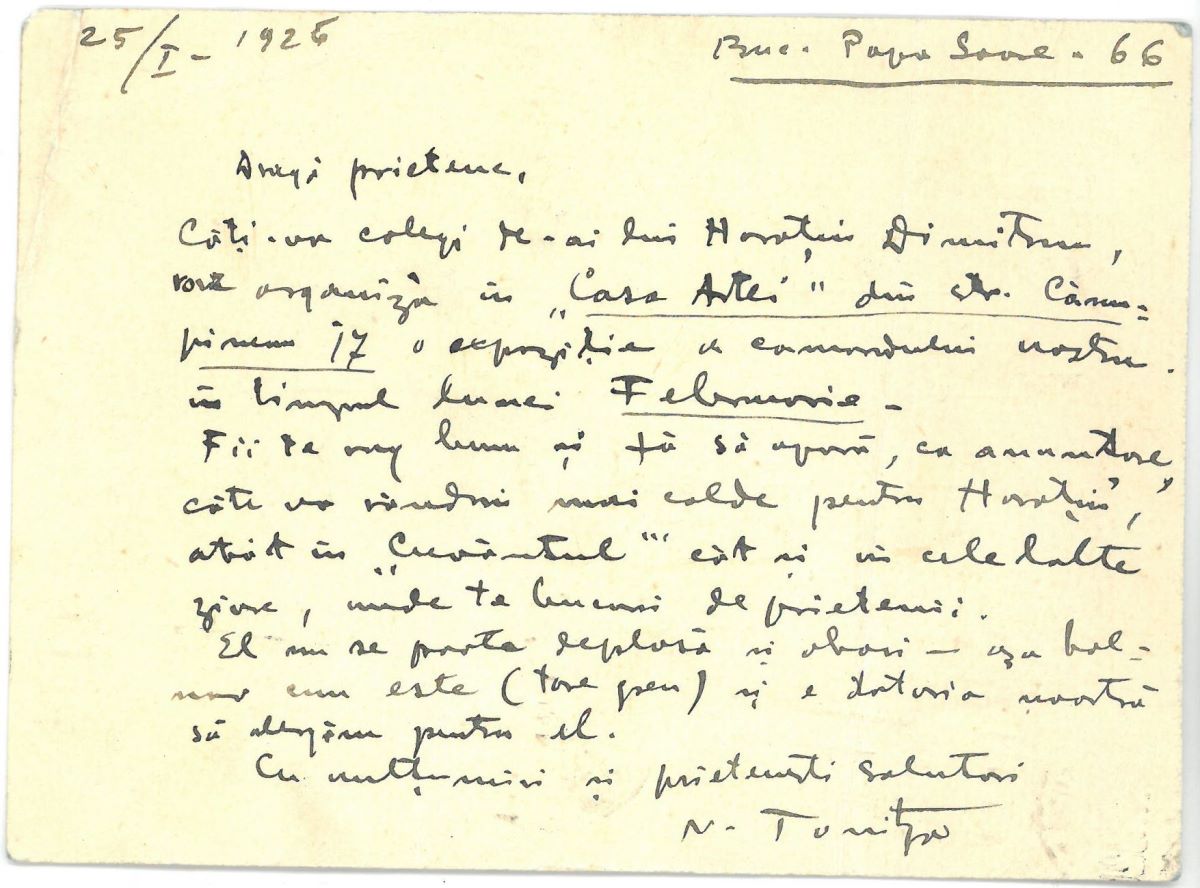 25/I - 1926
Buc. Papa Soare - 66
Dragă prietene,
Câți-va colegi de-ai lui Horațiu Dimitriu,
vor organiza în „Casa Artei" din str. Câm-
pineanu 17 o expoziție a camaradului nostru.
în timpul lunei Februarie -
Fii te rog bun și fă să apară, ca anunțare,
câte va rânduri mai calde pentru Horațiu,
atât în „Cuvântul" cât și în celelalte
ziare, unde te bucuri de prietenii.
El nu se poate deplasă și obosi - așa bol-
nav cum este (tare greu) și e datoria noastră
să alergăm pentru el.
Cu mulțumiri și prietenești salutări
N. Tonitza